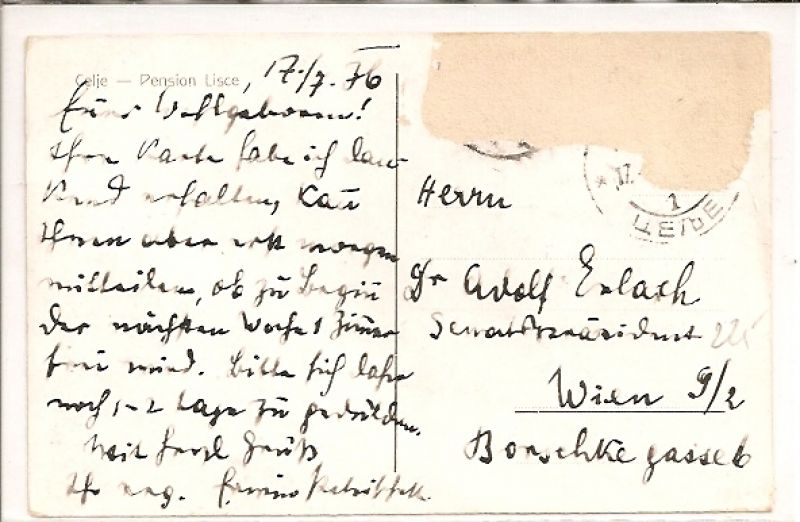 Celje — Pension Lisce, 17./7. 36
Euer Wohlgeboren!
Ihre Karte habe ich dan-
kend erhalten, kann
Ihnen aber erst morgen
mitteilen, ob zu Beginn
der nächsten Woche 1 Zimmer
frei wird. Bitte sich daher
noch 1-2 Tage zu gedulden.
Mit Gruß
Ihr erg.
* 17.
1
ЦЕЉЕ
Herrn
Dr Adolf Erlach
Senatspräsident
Wien 9/2
Borschkegasse 6